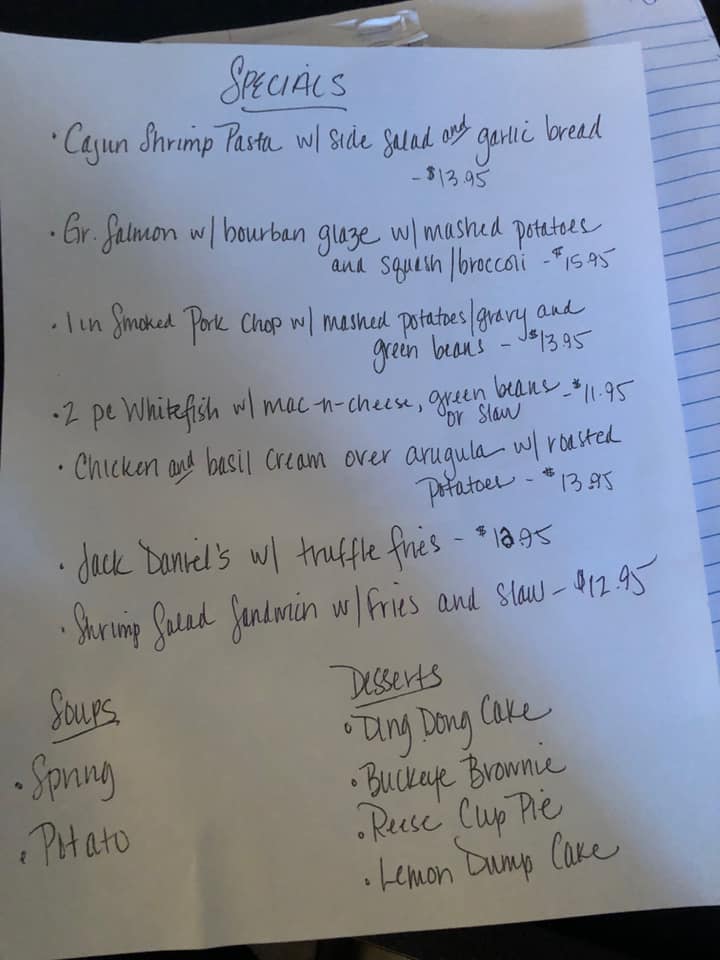 SPECIALS
• Cajun Shrimp Pasta w/ side salad and garlic bread
- $13.95
• Gr. Salmon w/ bourban glaze w/ mashed potatoes
and squash/broccoli - $15.95
• 1 in Smoked Pork Chop w/ mashed potatoes/gravy and
green beans - $13.95
• 2 pc Whitefish w/ mac-n-cheese, green beans - $11.95
or slaw
• Chicken and basil cream over arugula w/ roasted
potatoes - $13.95
• Jack Daniel's w/ truffle fries - $12.95
• Shrimp Salad Sandwich w/ fries and slaw - $12.95
Soups
• Spring
• Potato
Desserts
• Ding Dong Cake
• Buckeye Brownie
• Reese Cup Pie
• Lemon Dump Cake